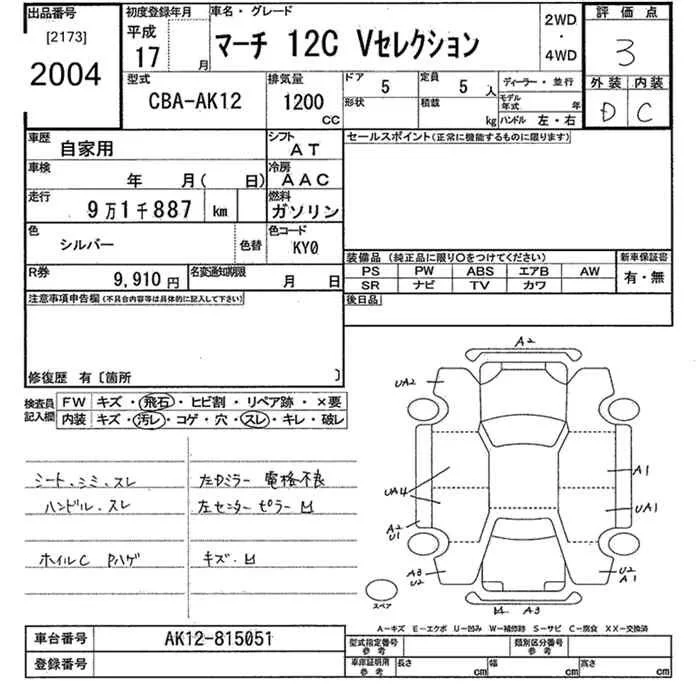 出品番号 初度登録年月 車名・グレード 2WD・4WD 評価点
[2173] 平成 17 月 マーチ 12C Vセレクション 3
2004 外装 内装
型式 排気量 ドア 5 定員 5 人 ディーラー・並行 D C
CBA-AK12 1200 CC 形状 積載 kg モデル年式 年
ハンドル 左・右
車歴 自家用 シフト AT セールスポイント(正常に機能するものに限ります)
車検 年 月( 日) 冷房 AAC
走行 9万1千887 km 燃料 ガソリン
色 シルバー 色替 色コード KY0
装備品(純正品に限り○をつけてください) 新車保証書
PS PW ABS エアB AW 有・無
SR ナビ TV カワ
R券 9,910円 名変通知期限 月 日 後日品
注意事項申告欄(不具合内容等は具体的に記入して下さい)
修復歴 有〔箇所 〕
検査員記入欄 FW キズ・飛石・ヒビ割・リペア跡・×要
内装 キズ・汚レ・コゲ・穴・スレ・キレ・破レ
シート、シミ、スレ 電格不良
ハンドル、スレ 左センターピラー M
ホイルC Pハゲ キズ・M
A2
UA2
UA4
A1
UA1
A2
U1
A3
U2
U2
A1
スペア
M A3
A−キズ E−エクボ U−凹み W−補修跡 S−サビ C−腐食 XX−交換済
車台番号 AK12-815051 型式指定番号 参考 類別区分番号 参考
登録番号 車庫証明用 参考 長さ cm 幅 cm 高さ cm